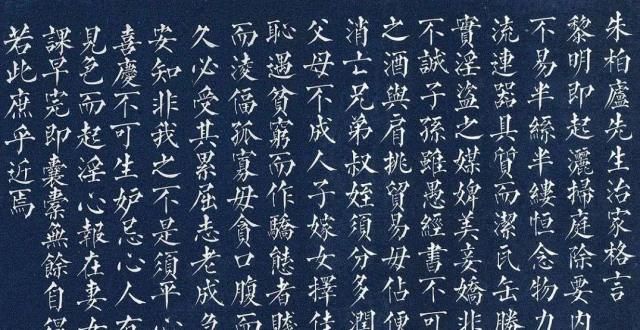 朱柏廬先生治家格言
黎明即起灑掃庭除要内
不易半絲半縷恒念物力
流連器具質而潔瓦缶勝
實淫盜之媒婢美妾嬌非
不誠子孫雖愚經書不可
之酒與肩挑貿易毋佔便
消亡兄弟叔姪須分多潤
父母不成人子嫁女擇佳
恥遇貧窮而作驕態者賤
而淩偪孤寡毋貪口腹而
久必受其累屈志老成急
安知非我之不是須平心
喜慶不可生妒忌心人有
見色而起淫心報在妻女
課早完即囊橐無餘自得
若此庶乎近焉